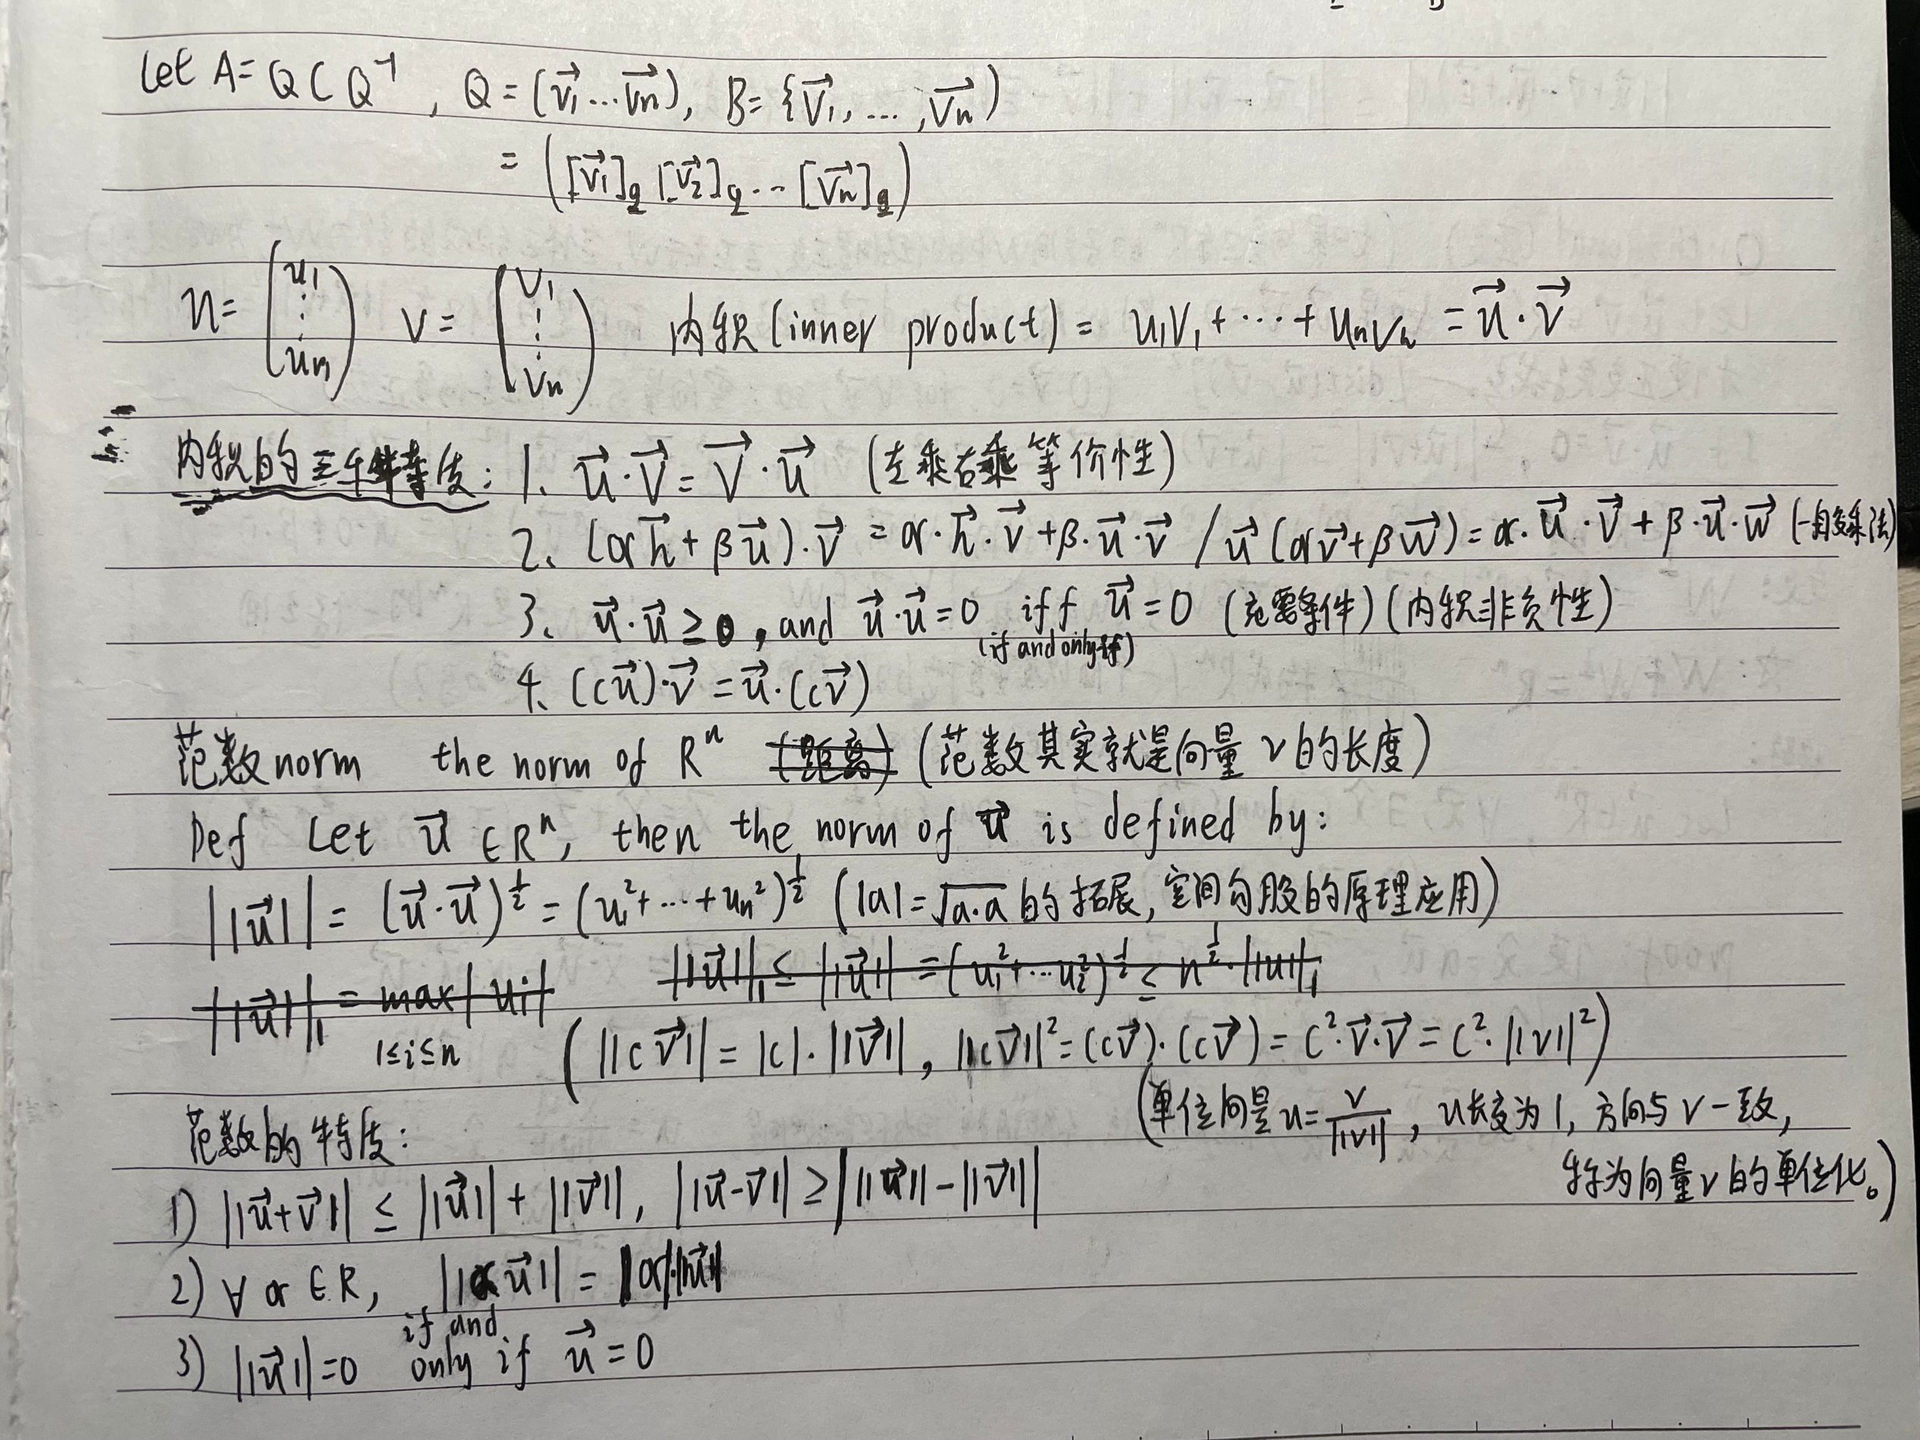 Let A = Q C Q⁻¹, Q = (v⃗₁ ... v⃗n), B = {v⃗₁, ..., v⃗n)
= ([v⃗₁]q [v⃗₂]q ... [v⃗n]q)
u = (u₁ ⋮ un) v = (v₁ ⋮ vn) 内积 (inner product) = u₁v₁ + ... + unvn = u⃗·v⃗
内积的三个特质: 1. u⃗·v⃗ = v⃗·u⃗ (左乘右乘等价性)
2. (αh⃗ + βu⃗)·v⃗ = α·h⃗·v⃗ + β·u⃗·v⃗ / u⃗(αv⃗ + βw⃗) = α·u⃗·v⃗ + β·u⃗·w⃗ (一般乘法)
3. u⃗·u⃗ ≥ 0, and u⃗·u⃗ = 0 iff u⃗ = 0 (充要条件) (内积非负性)
(if and only if)
4. (cu⃗)·v⃗ = u⃗·(cv⃗)
范数 norm the norm of Rⁿ (距离) (范数其实就是向量v的长度)
Def Let u⃗ ∈ Rⁿ, then the norm of u⃗ is defined by:
||u⃗|| = (u⃗·u⃗)^½ = (u₁² + ... + un²)^½ (|a| = √a·a 的拓展, 空间勾股的原理应用)
||u⃗||₁ = max|ui| ||u⃗||₁ ≤ ||u⃗|| = (u₁² + ... u²)^½ ≤ n^½·||u||₁
1≤i≤n (||cv⃗|| = |c|·||v⃗||, ||cv⃗||² = (cv⃗)·(cv⃗) = c²·v⃗·v⃗ = c²·||v||²)
(单位向量 u = v/||v||, u长度为1, 方向与v一致,
称为向量v的单位化。)
范数的特质:
1) ||u⃗+v⃗|| ≤ ||u⃗|| + ||v⃗||, ||u⃗-v⃗|| ≥ | ||u⃗|| - ||v⃗|| |
2) ∀ α ∈ R, ||αu⃗|| = |α|·||u⃗||
3) ||u⃗|| = 0 if and only if u⃗ = 0